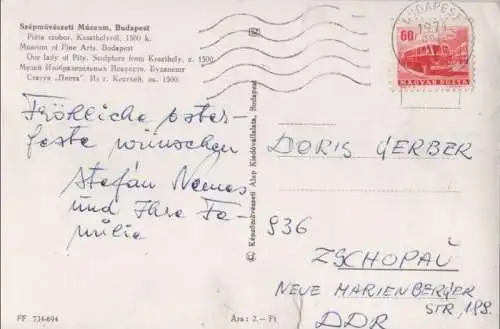 Szépművészeti Múzeum, Budapest
Piéta szobor. Keszthelyről. 1500 k.
Museum of Fine Arts. Budapest
Our lady of Pity. Sculpture from Keszthely, c. 1500.
Музей Изобразительных Искусств. Будапешт
Статуя „Пиета“. Из г. Кестхей, ок. 1500.
Fröhliche oster-
feste wünschen
Stefán Nemes
und Ihre Fa-
milia
FF. 734-694
Ára: 2.– Ft
Képzőművészeti Alap Kiadóvállalata, Budapest
BUDAPEST
1971
60f
MAGYAR POSTA
DORIS GERBER
936
ZSCHOPAU
NEUE MARIENBERGER
STR, 188.
DDR